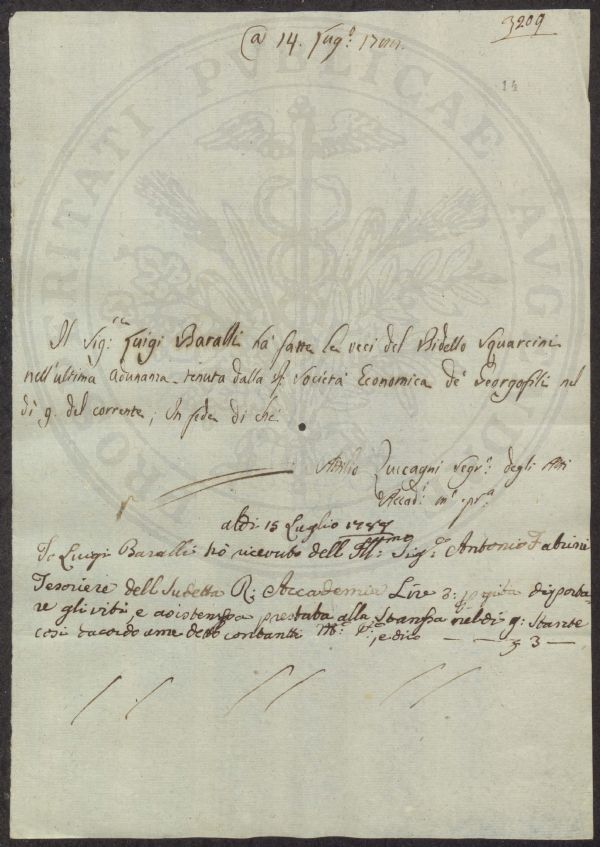 3209
@ 14. Lug.º 17
14
PROSPERITATI PUBLICAE AUGENDAE
Il Sig.re Luigi Baralli ha fatte le veci del Bidello Squarcini
nell'ultima Adunanza tenuta dalla R. Società Economica de' Georgofili nel
dì 9. del corrente; In fede di che
Attilio Zuccagni Segr.º degli Atti
Accad.i m.º pr.a
Adì 15 Luglio 1787
Io Luigi Baralli hò ricevuto dell Ill:mo Sig.º Antonio Fabrini
Tesoriere dell Sudetta R: Accademia Lire 3: p gita di porta
re gli viti, e asistenza prestata alla Stanza nel dì 9: Stante
cosi dacordo ame detto contanti M.º P.º, e dico — — 3 —